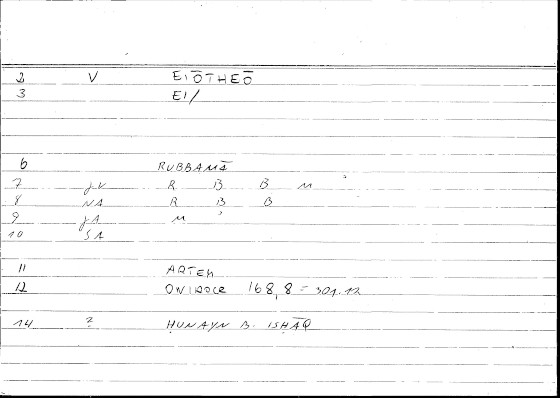 2 V EIŌTHEŌ
3 EI/
6 RUBBAMĀ
7 jV R B B M ʾ
8 NA R B B
9 jA M ʾ
10 SA
11 ARTEM
12 ONIROCR 168,8 = 301.12
14 ? ḤUNAYN B. ISḤĀQ